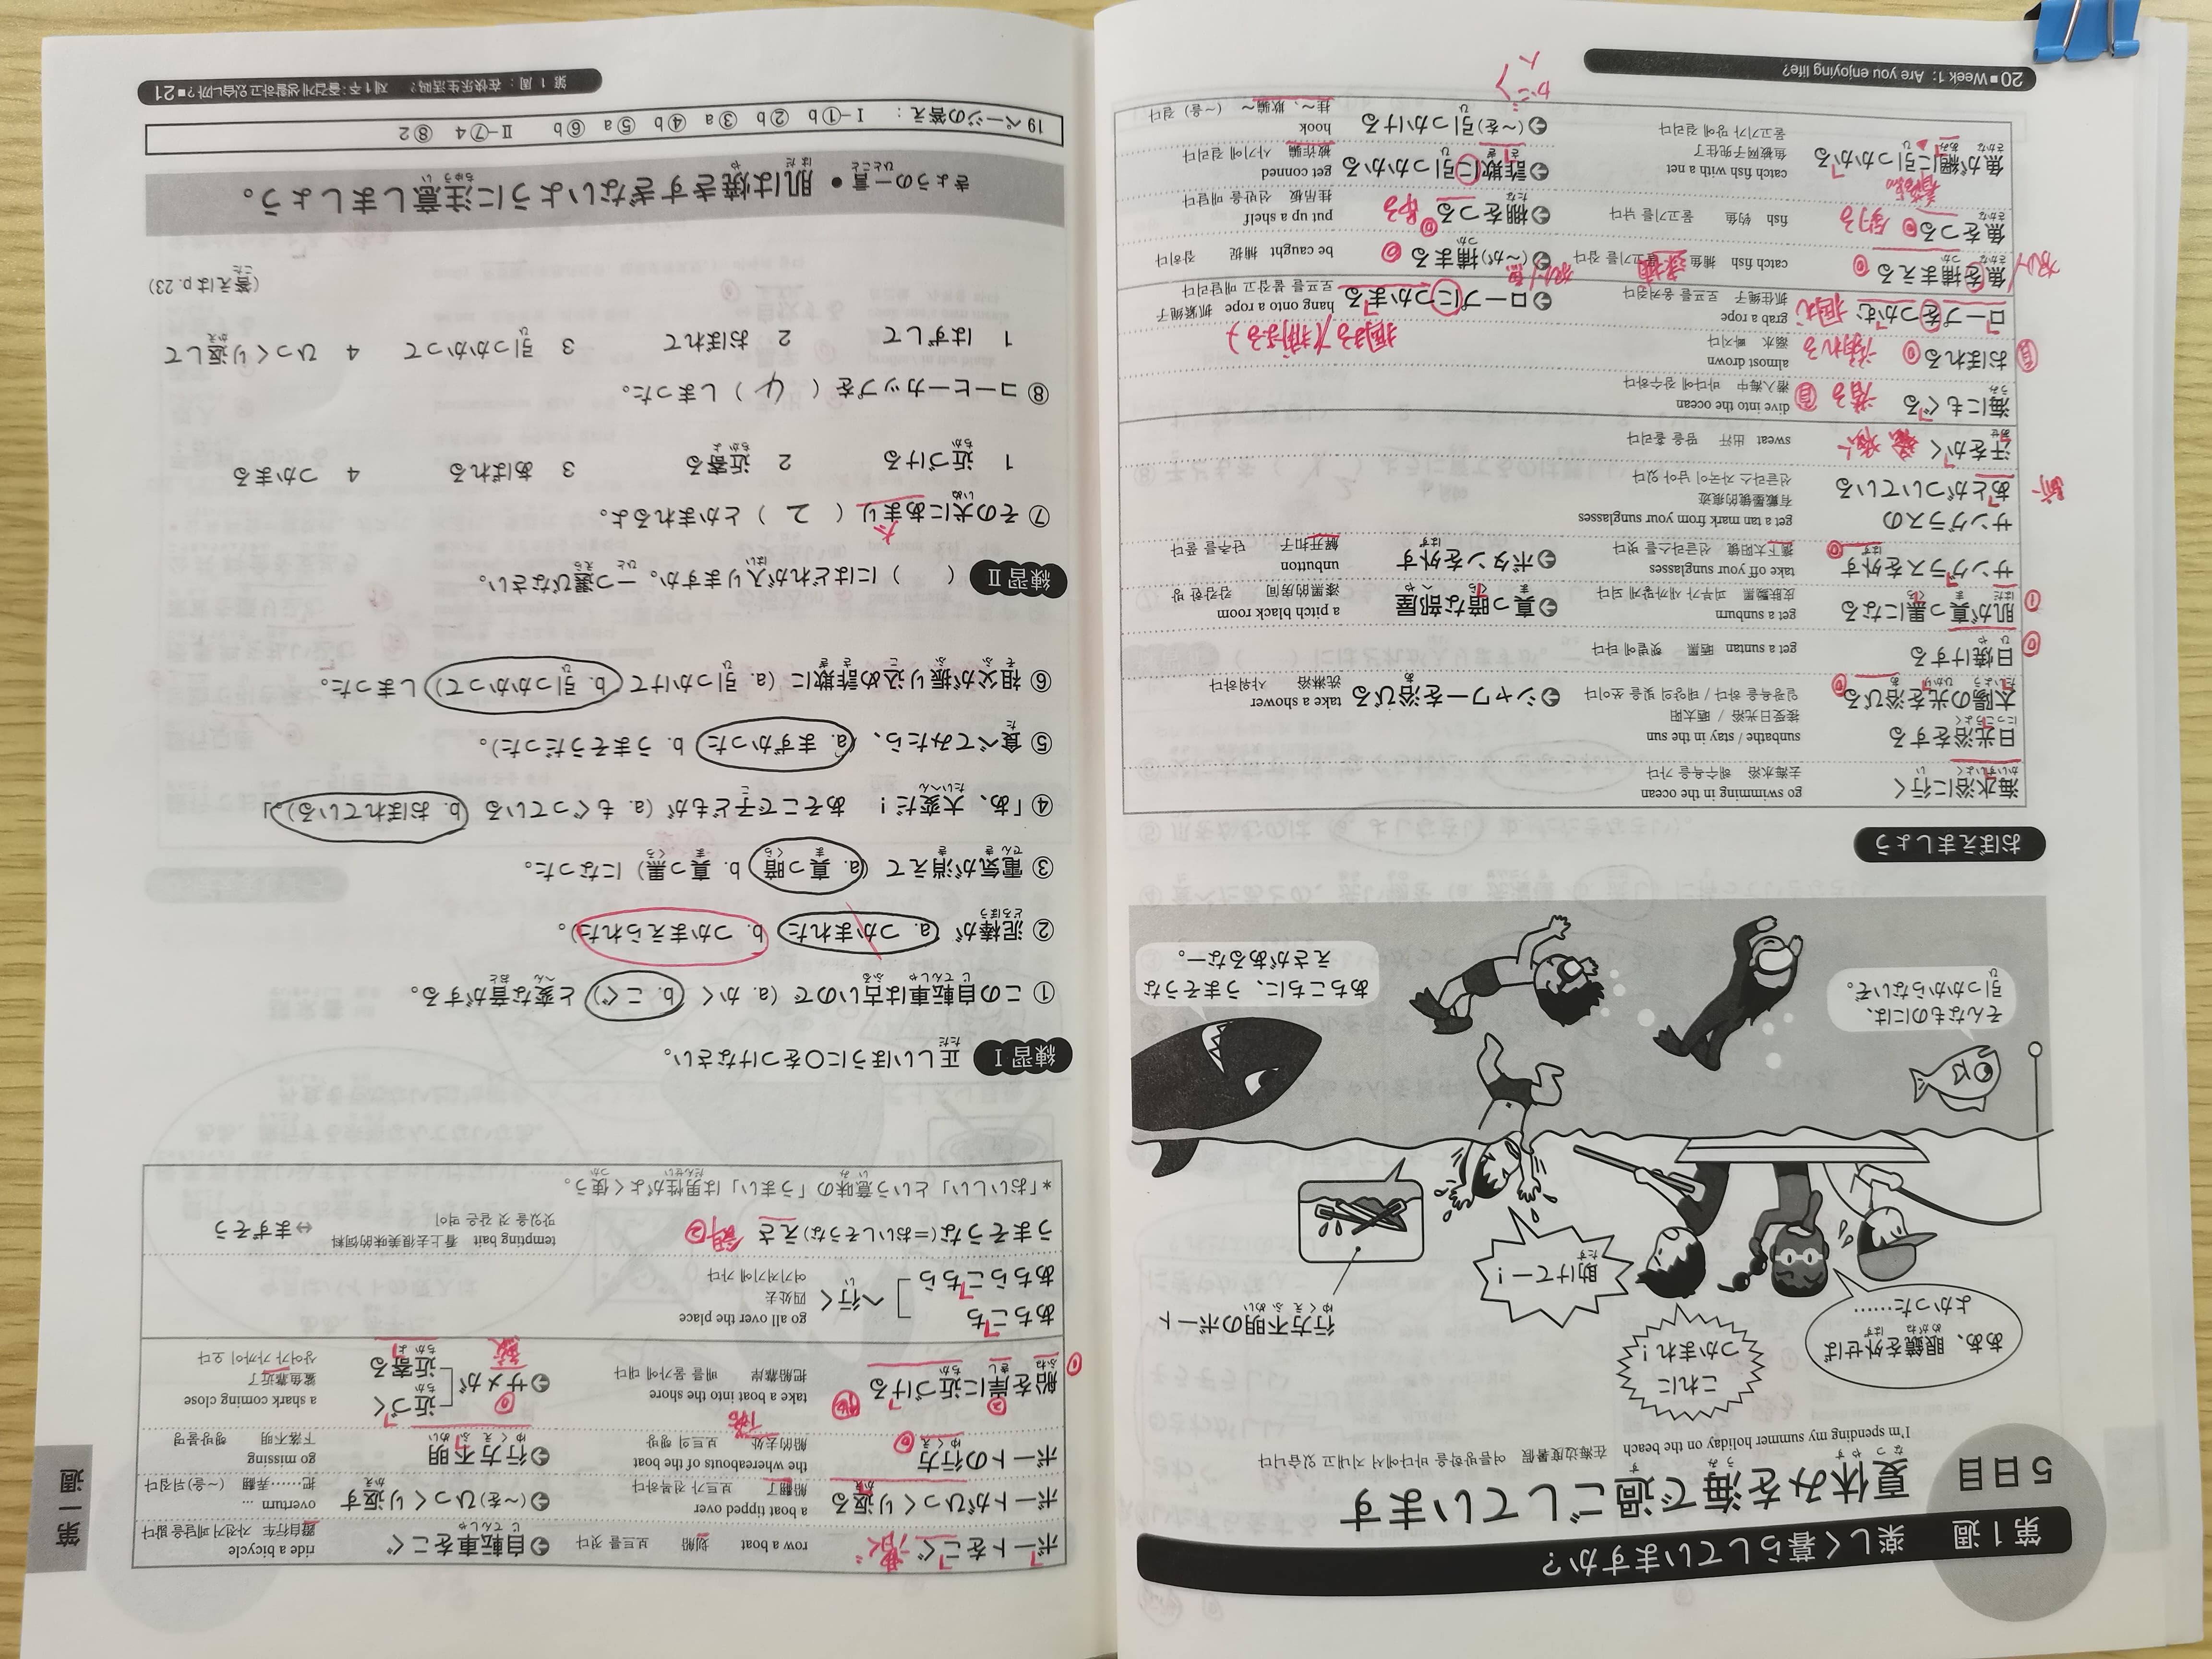 第1週 楽しく暮らしていますか?
5日目
夏休みを海で過ごしています
I'm spending my summer holiday on the beach 在海边度暑假 여름방학을 바다에서 지내고 있습니다
ああ、眼鏡を外せば
よかった……
これに
つかまれ!
助けてー!
行方不明のボート
そんなものには、
引っかからないぞ。
あちこちに、うまそうな
えさがあるなー。
おぼえましょう
海水浴に行く go swimming in the ocean 去海水浴 해수욕을 가다
日光浴をする sunbathe / stay in the sun
太陽の光を浴びる 接受日光浴 / 晒太阳 일광욕을 하다 / 태양의 빛을 쏘이다
➔シャワーを浴びる take a shower 洗淋浴 샤워하다
日焼けする get a suntan 晒黑 햇볕에 타다
肌が真っ黒になる get a sunburn 皮肤黝黑 피부가 새까맣게 되다
➔真っ暗な部屋 a pitch black room 漆黑的房间 캄캄한 방
サングラスを外す take off your sunglasses 摘下太阳镜 선글라스를 벗다
➔ボタンを外す unbutton 解开扣子 단추를 풀다
サングラスの
あとがついている get a tan mark from your sunglasses 有戴墨镜的痕迹 선글라스 자국이 남아 있다
汗をかく sweat 出汗 땀을 흘리다
海にもぐる 潜る dive into the ocean 潜入海中 바다에 잠수하다
おぼれる 溺れる almost drown 溺水 빠지다
ロープをつかむ 掴む grab a rope 抓住绳子 로프를 움켜쥐다
➔ロープにつかまる hang onto a rope 抓紧绳子 로프를 붙잡고 매달리다
掴る(捕まる)
魚を捕まえる catch fish 捕鱼 물고기를 잡다
➔(〜が)捕まる be caught 捕捉 잡히다
魚をつる 釣る fish 钓鱼 물고기를 낚다
➔棚をつる put up a shelf 挂吊板 선반을 매달다
魚が網に引っかかる catch fish with a net 鱼被网子兜住了 물고기가 망에 걸리다
➔詐欺に引っかかる get conned 被诈骗 사기에 걸리다
➔(〜を)引っかける hook 挂〜、欺骗〜 (〜을) 걸다
20■Week 1: Are you enjoying life?
第一週
ボートをこぐ 漕ぐ row a boat 划船 보트를 젓다
➔自転車をこぐ ride a bicycle 蹬自行车 자전거 페달을 밟다
ボートがひっくり返る a boat tipped over 船翻了 보트가 전복하다
➔(〜を)ひっくり返す overturn … 把……弄翻 (〜을)뒤집다
ボートの行方 the whereabouts of the boat 船的去处 보트의 행방
➔行方不明 go missing 下落不明 행방불명
船を岸に近づける take a boat into the shore 把船靠岸 배를 물가에 대다
➔サメが 近づく 近寄る a shark coming close 鲨鱼靠近了 상어가 가까이 오다
あちこち
あちらこちら へ行く go all over the place 四处去 여기저기에 가다
うまそうな(=おいしそうな)えさ 餌 tempting bait 看上去很美味的饲料 맛있을 것 같은 먹이 ⇔まずそう
*「おいしい」という意味の「うまい」は男性がよく使う。
練習Ⅰ 正しいほうに○をつけなさい。
① この自転車は古いので(a. かく b. こぐ)と変な音がする。
② 泥棒が(a. つかまれた b. つかまえられた)。
③ 電気が消えて(a. 真っ暗 b. 真っ黒)になった。
④「あ、大変だ! あそこで子どもが(a. もぐっている b. おぼれている)」
⑤ 食べてみたら、(a. まずかった b. うまそうだった)。
⑥ 祖父が振り込め詐欺に(a. 引っかけて b. 引っかかって)しまった。
練習Ⅱ ( )にはどれが入りますか。一つ選びなさい。
⑦ その犬にあまり( 2 )とかまれるよ。
1 近づける 2 近寄る 3 あばれる 4 つかまる
⑧ コーヒーカップを( 4 )しまった。
1 はずして 2 おぼれて 3 引っかかって 4 ひっくり返して
(答えは p.23)
きょうの一言 ● 肌は焼きすぎないように注意しましょう。
19ページの答え: Ⅰ-①b ②b ③a ④b ⑤a ⑥b Ⅱ-⑦4 ⑧2
第1周:在快乐生活吗? 제1주:즐겁게 생활하고 있습니까?■21